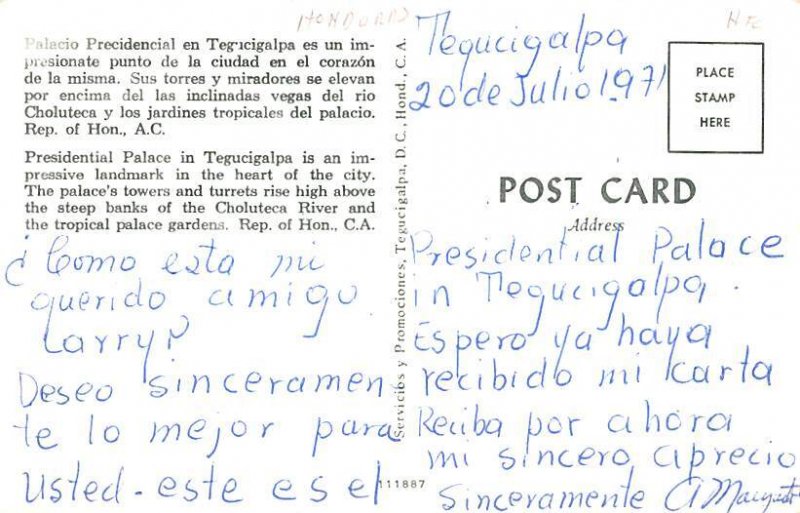 HONDURAS
Palacio Precidencial en Tegucigalpa es un im-
presionate punto de la ciudad en el corazón
de la misma. Sus torres y miradores se elevan
por encima del las inclinadas vegas del rio
Choluteca y los jardines tropicales del palacio.
Rep. of Hon., A.C.
Presidential Palace in Tegucigalpa is an im-
pressive landmark in the heart of the city.
The palace's towers and turrets rise high above
the steep banks of the Choluteca River and
the tropical palace gardens. Rep. of Hon., C.A.
¿Como esta mi
querido amigo
Larry?
Deseo sinceramen
te lo mejor para
Usted - este es el
Servicios y Promociones, Tegucigalpa, D.C., Hond., C.A.
111887
Tegucigalpa
20 de Julio 1.971
PLACE
STAMP
HERE
POST CARD
Address
Presidential Palace
in Tegucigalpa.
Espero ya haya
recibido mi carta
Reciba por ahora
mi sincero aprecio
Sinceramente